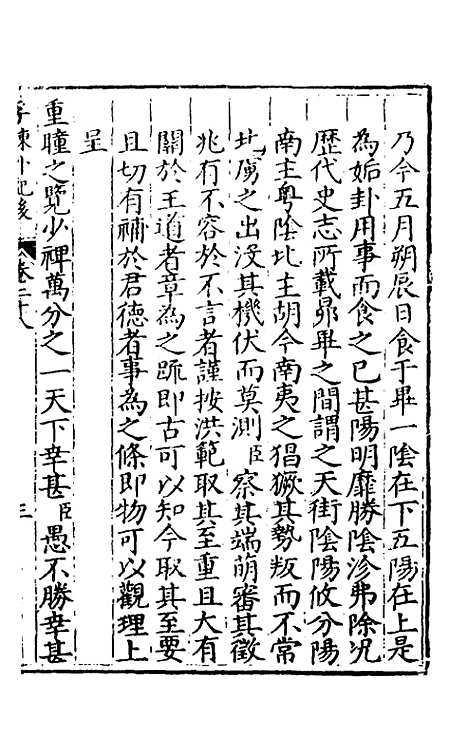 乃今五月朔辰日食于畢一陰在下五陽在上是
為姤卦用事而食之已甚陽明靡勝陰沴弗除况
歷代史志所載昴畢之間謂之天街陰陽攸分陽
南主粤陰北主胡今南夷之猖獗其勢叛而不常
北虜之出没其機伏而莫測臣察其端萌審其徵
兆有不容於不言者謹按洪範取其至重且大有
關於王道者章為之疏即古可以知今取其至要
且切有補於君德者事為之條即物可以觀理上
呈
重瞳之覽少裨萬分之一天下幸甚臣愚不勝幸甚
卷二十八 三